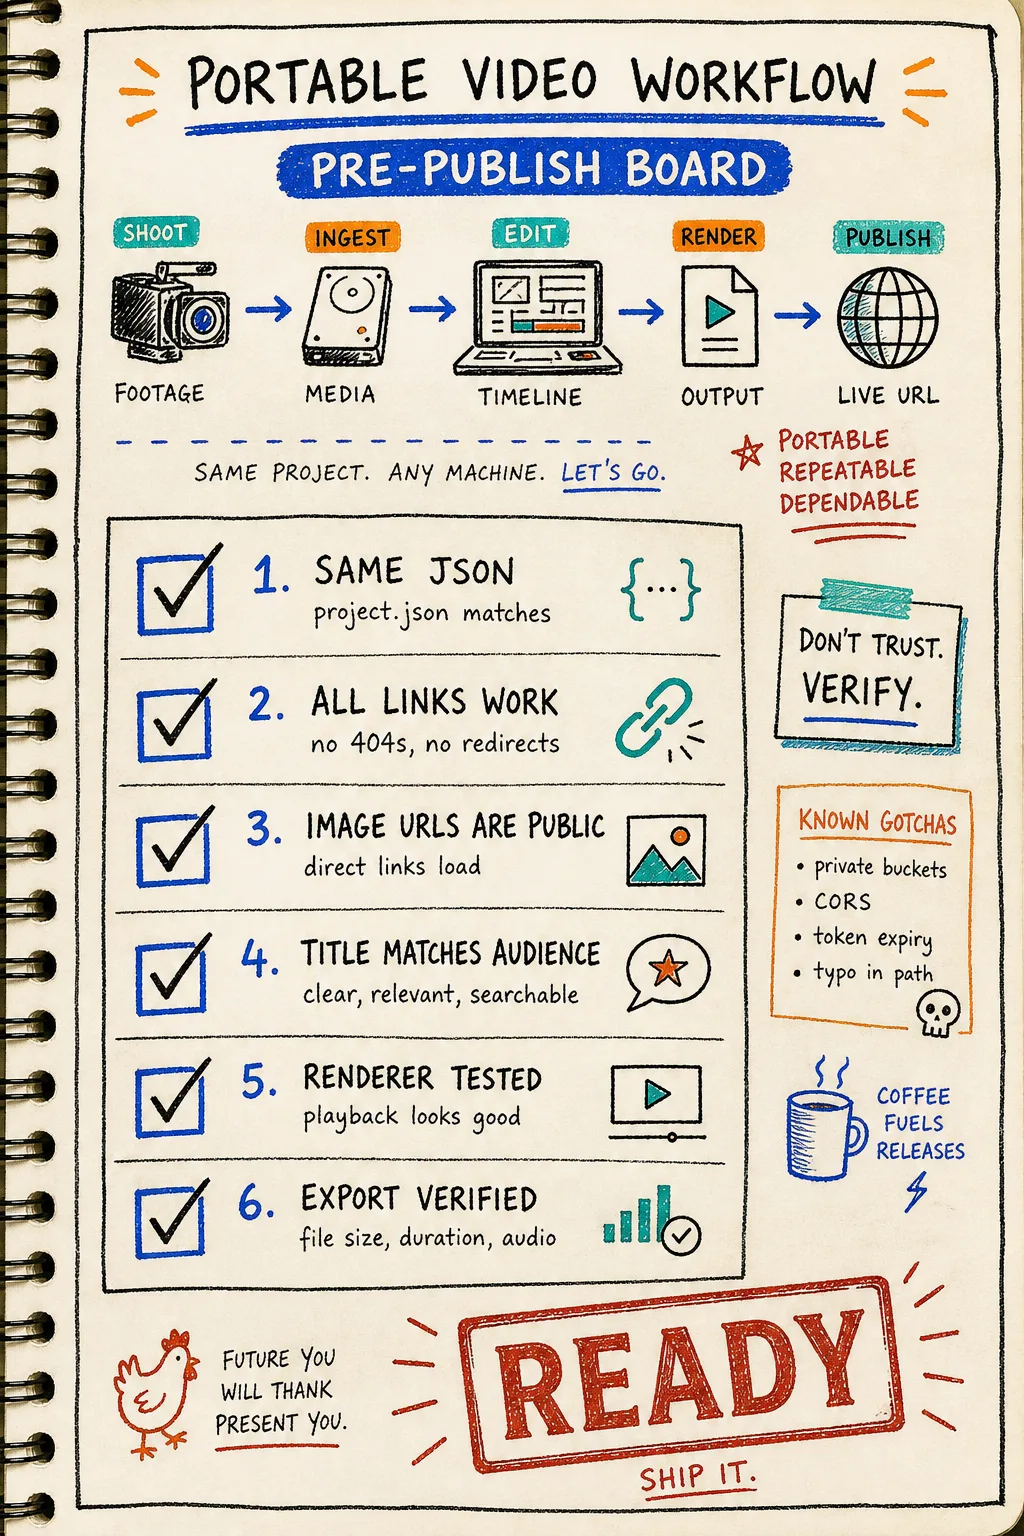 PORTABLE VIDEO WORKFLOW
PRE-PUBLISH BOARD
SHOOT
INGEST
EDIT
RENDER
PUBLISH
FOOTAGE
MEDIA
TIMELINE
OUTPUT
LIVE URL
SAME PROJECT. ANY MACHINE. LET'S GO.
PORTABLE
REPEATABLE
DEPENDABLE
1. SAME JSON
project.json matches
{...}
2. ALL LINKS WORK
no 404s, no redirects
3. IMAGE URLS ARE PUBLIC
direct links load
4. TITLE MATCHES AUDIENCE
clear, relevant, searchable
5. RENDERER TESTED
playback looks good
6. EXPORT VERIFIED
file size, duration, audio
DON'T TRUST.
VERIFY.
KNOWN GOTCHAS
• private buckets
• CORS
• token expiry
• typo in path
COFFEE
FUELS
RELEASES
FUTURE YOU
WILL THANK
PRESENT YOU.
READY
SHIP IT.